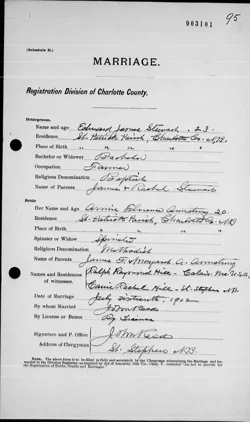 95
003101
(Schedule B.)
MARRIAGE.
Registration Division of Charlotte County.
Bridegroom.
Name and age Edward James Stewart - 23
Residence St. Patrick Parish, Charlotte Co. N.B.
Place of Birth " " "
Bachelor or Widower Bachelor
Occupation Farmer
Religious Denomination Baptist
Name of Parents James & Rachel Stewart
Bride.
Her Name and Age Annie Armstrong 20
Residence St. Patrick Parish, Charlotte Co. N.B.
Place of Birth " " "
Spinster or Widow Spinster
Religious Denomination Methodist
Name of Parents James F. & Margaret A. Armstrong
Names and Residences of witnesses. Ralph Raymond Hill - Calais Me. U.S.A.
Carrie Rachel Hill - St. Stephen N.B.
Date of Marriage July sixteenth, 1902
By whom Married John Read
By License or Banns By License
Signature and P. Office John Read
Address of Clergyman St. Stephen N.B.